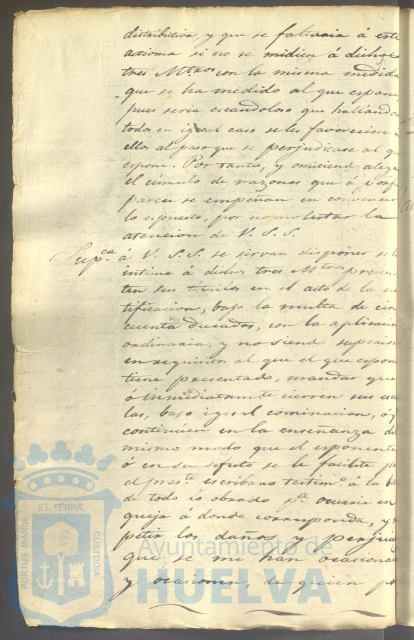 distributiva, y que se faltaria á este
axioma si no se midien á dichos
tres Mtros con la misma medida
que se ha medido al que espone
pues seria escandoloso que hallandose
todos en igual caso se les favoreciese á
ellos al paso que se perjudicase al q
espone. Por tanto, y omitiendo alega
el cúmulo de razones que á
parece se empeñan en convencer
lo espuesto, por no molestar la
atencion de V. S. S.
Supca á V. S. S. se sirvan disponer se
intime á dichos tres Mtros presen
ten sus titulos en el acto de la no
tificacion, bajo la multa de cin
cuenta ducados, con la aplicacion
ordinaria, y no siendo superior
en requisitos al que el que espone
tiene presentado, mandar que
ó inmediatamte cierren sus escue
las, bajo igual cominacion, ó q
continúen en la enseñanza del
mismo modo que el esponente
ó en su defecto se le facilite por
el preste escribano testimo á la
de todo lo obrado pa ocurrir en
queja á donde corresponda, y
petir los daños y perjui
que se me han ocasiona
y ocasionen, de quien
PORTUS MARIS
ET TERRÆ
CUSTODIA
Ayuntamiento de
HUELVA